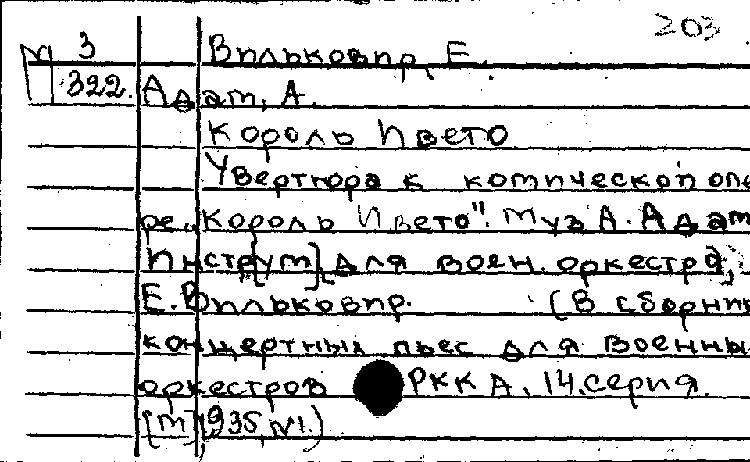 203
М 3 Вильковир, Е.
322. Адам, А.
Король Ивето
Увертюра к комической опе
ре „Король Ивето". Муз А. Адам
Инструм[.] для воен. оркестра,
Е. Вильковир. (В сборник
концертных пьес для военны
оркестров РККА. 14.серия.
[М] 1935, №1.)